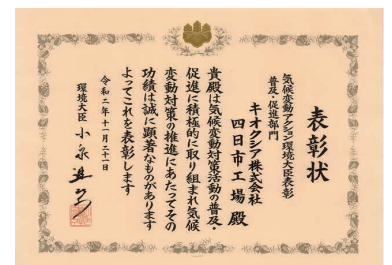 表彰状
気候変動アクション環境大臣表彰
普及・促進部門
キオクシア株式会社
四日市工場 殿
貴殿は気候変動対策活動の普及・
促進に積極的に取り組まれ気候
変動対策の推進にあたってその
功績は誠に顕著なものがあります
よってこれを表彰します
令和二年十一月二十一日
環境大臣 小泉進次郎